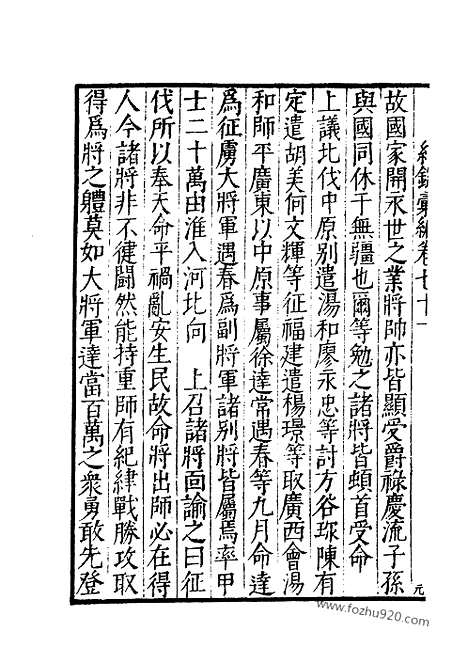 紀錄彙編卷七十一
故國家開永世之業將帥亦皆顯受爵祿慶流子孫
與國同休于無疆也爾等勉之諸將皆頓首受命
上議北伐中原別遣湯和廖永忠等討方谷珎陳有
定遣胡美何文輝等征福建遣楊璟等取廣西會湯
和師平廣東以中原事屬徐達常遇春等九月命達
爲征虜大將軍遇春爲副將軍諸別將皆屬焉率甲
士二十萬由淮入河北向　上召諸將面諭之曰征
伐所以奉天命平禍亂安生民故命將出師必在得
人今諸將非不健鬪然能持重師有紀律戰勝攻取
得爲將之體莫如大將軍達當百萬之衆勇敢先登
元
www.fozhu920.com